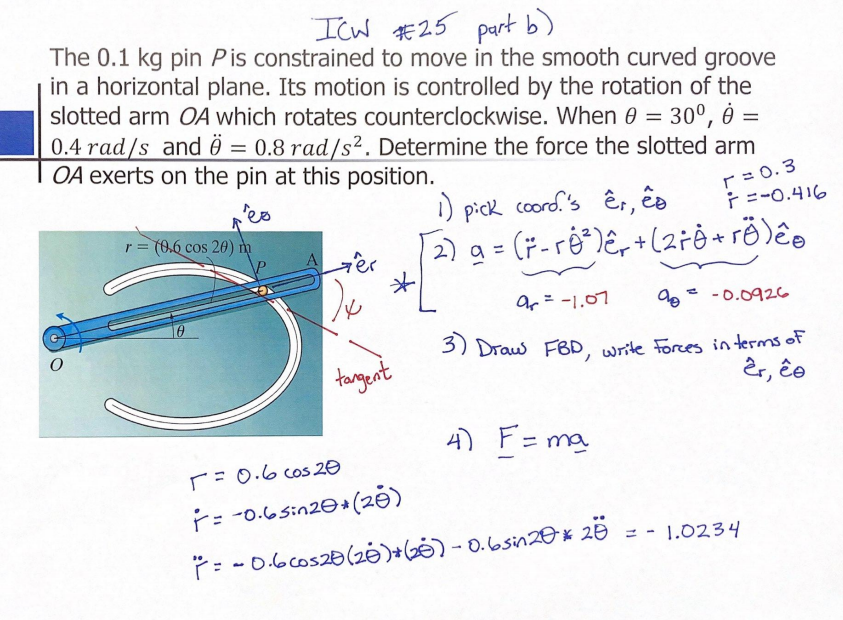 ICW #25 part b)
The 0.1 kg pin P is constrained to move in the smooth curved groove
in a horizontal plane. Its motion is controlled by the rotation of the
slotted arm OA which rotates counterclockwise. When θ = 30⁰, θ̇ =
0.4 rad/s and θ̈ = 0.8 rad/s². Determine the force the slotted arm
OA exerts on the pin at this position.
r = 0.3
ṙ = -0.416
1) pick coord.'s ê_r, ê_θ
ê_θ
r = (0.6 cos 2θ) m
P
A
ê_r
θ
O
ψ
tangent
* 2) a = (r̈ - rθ̇²)ê_r + (2ṙθ̇ + rθ̈)ê_θ
a_r = -1.07 a_θ = -0.0926
3) Draw FBD, write forces in terms of
ê_r, ê_θ
4) F = ma
r = 0.6 cos2θ
ṙ = -0.6 sin2θ * (2θ̇)
r̈ = -0.6 cos2θ (2θ̇)*(2θ̇) - 0.6 sin2θ * 2θ̈ = -1.0234